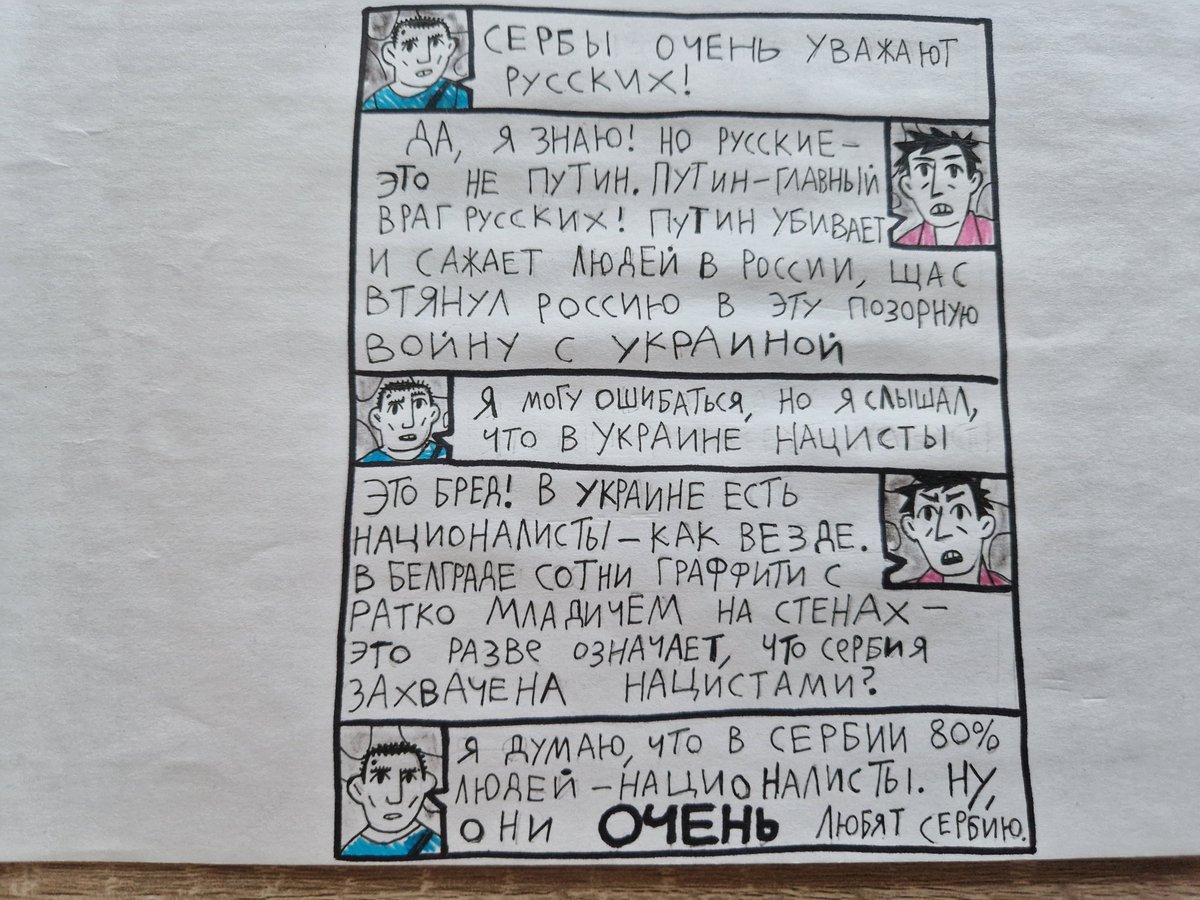 СЕРБЫ ОЧЕНЬ УВАЖАЮТ
РУССКИХ!
ДА, Я ЗНАЮ! НО РУССКИЕ–
ЭТО НЕ ПУТИН. ПУТИН–ГЛАВНЫЙ
ВРАГ РУССКИХ! ПУТИН УБИВАЕТ
И САЖАЕТ ЛЮДЕЙ В РОССИИ, ЩАС
ВТЯНУЛ РОССИЮ В ЭТУ ПОЗОРНУЮ
ВОЙНУ С УКРАИНОЙ
Я МОГУ ОШИБАТЬСЯ, НО Я СЛЫШАЛ,
ЧТО В УКРАИНЕ НАЦИСТЫ
ЭТО БРЕД! В УКРАИНЕ ЕСТЬ
НАЦИОНАЛИСТЫ – КАК ВЕЗДЕ.
В БЕЛГРАДЕ СОТНИ ГРАФФИТИ С
РАТКО МЛАДИЧЕМ НА СТЕНАХ –
ЭТО РАЗВЕ ОЗНАЧАЕТ, ЧТО СЕРБИЯ
ЗАХВАЧЕНА НАЦИСТАМИ?
Я ДУМАЮ, ЧТО В СЕРБИИ 80%
ЛЮДЕЙ – НАЦИОНАЛИСТЫ. НУ,
ОНИ ОЧЕНЬ ЛЮБЯТ СЕРБИЮ.